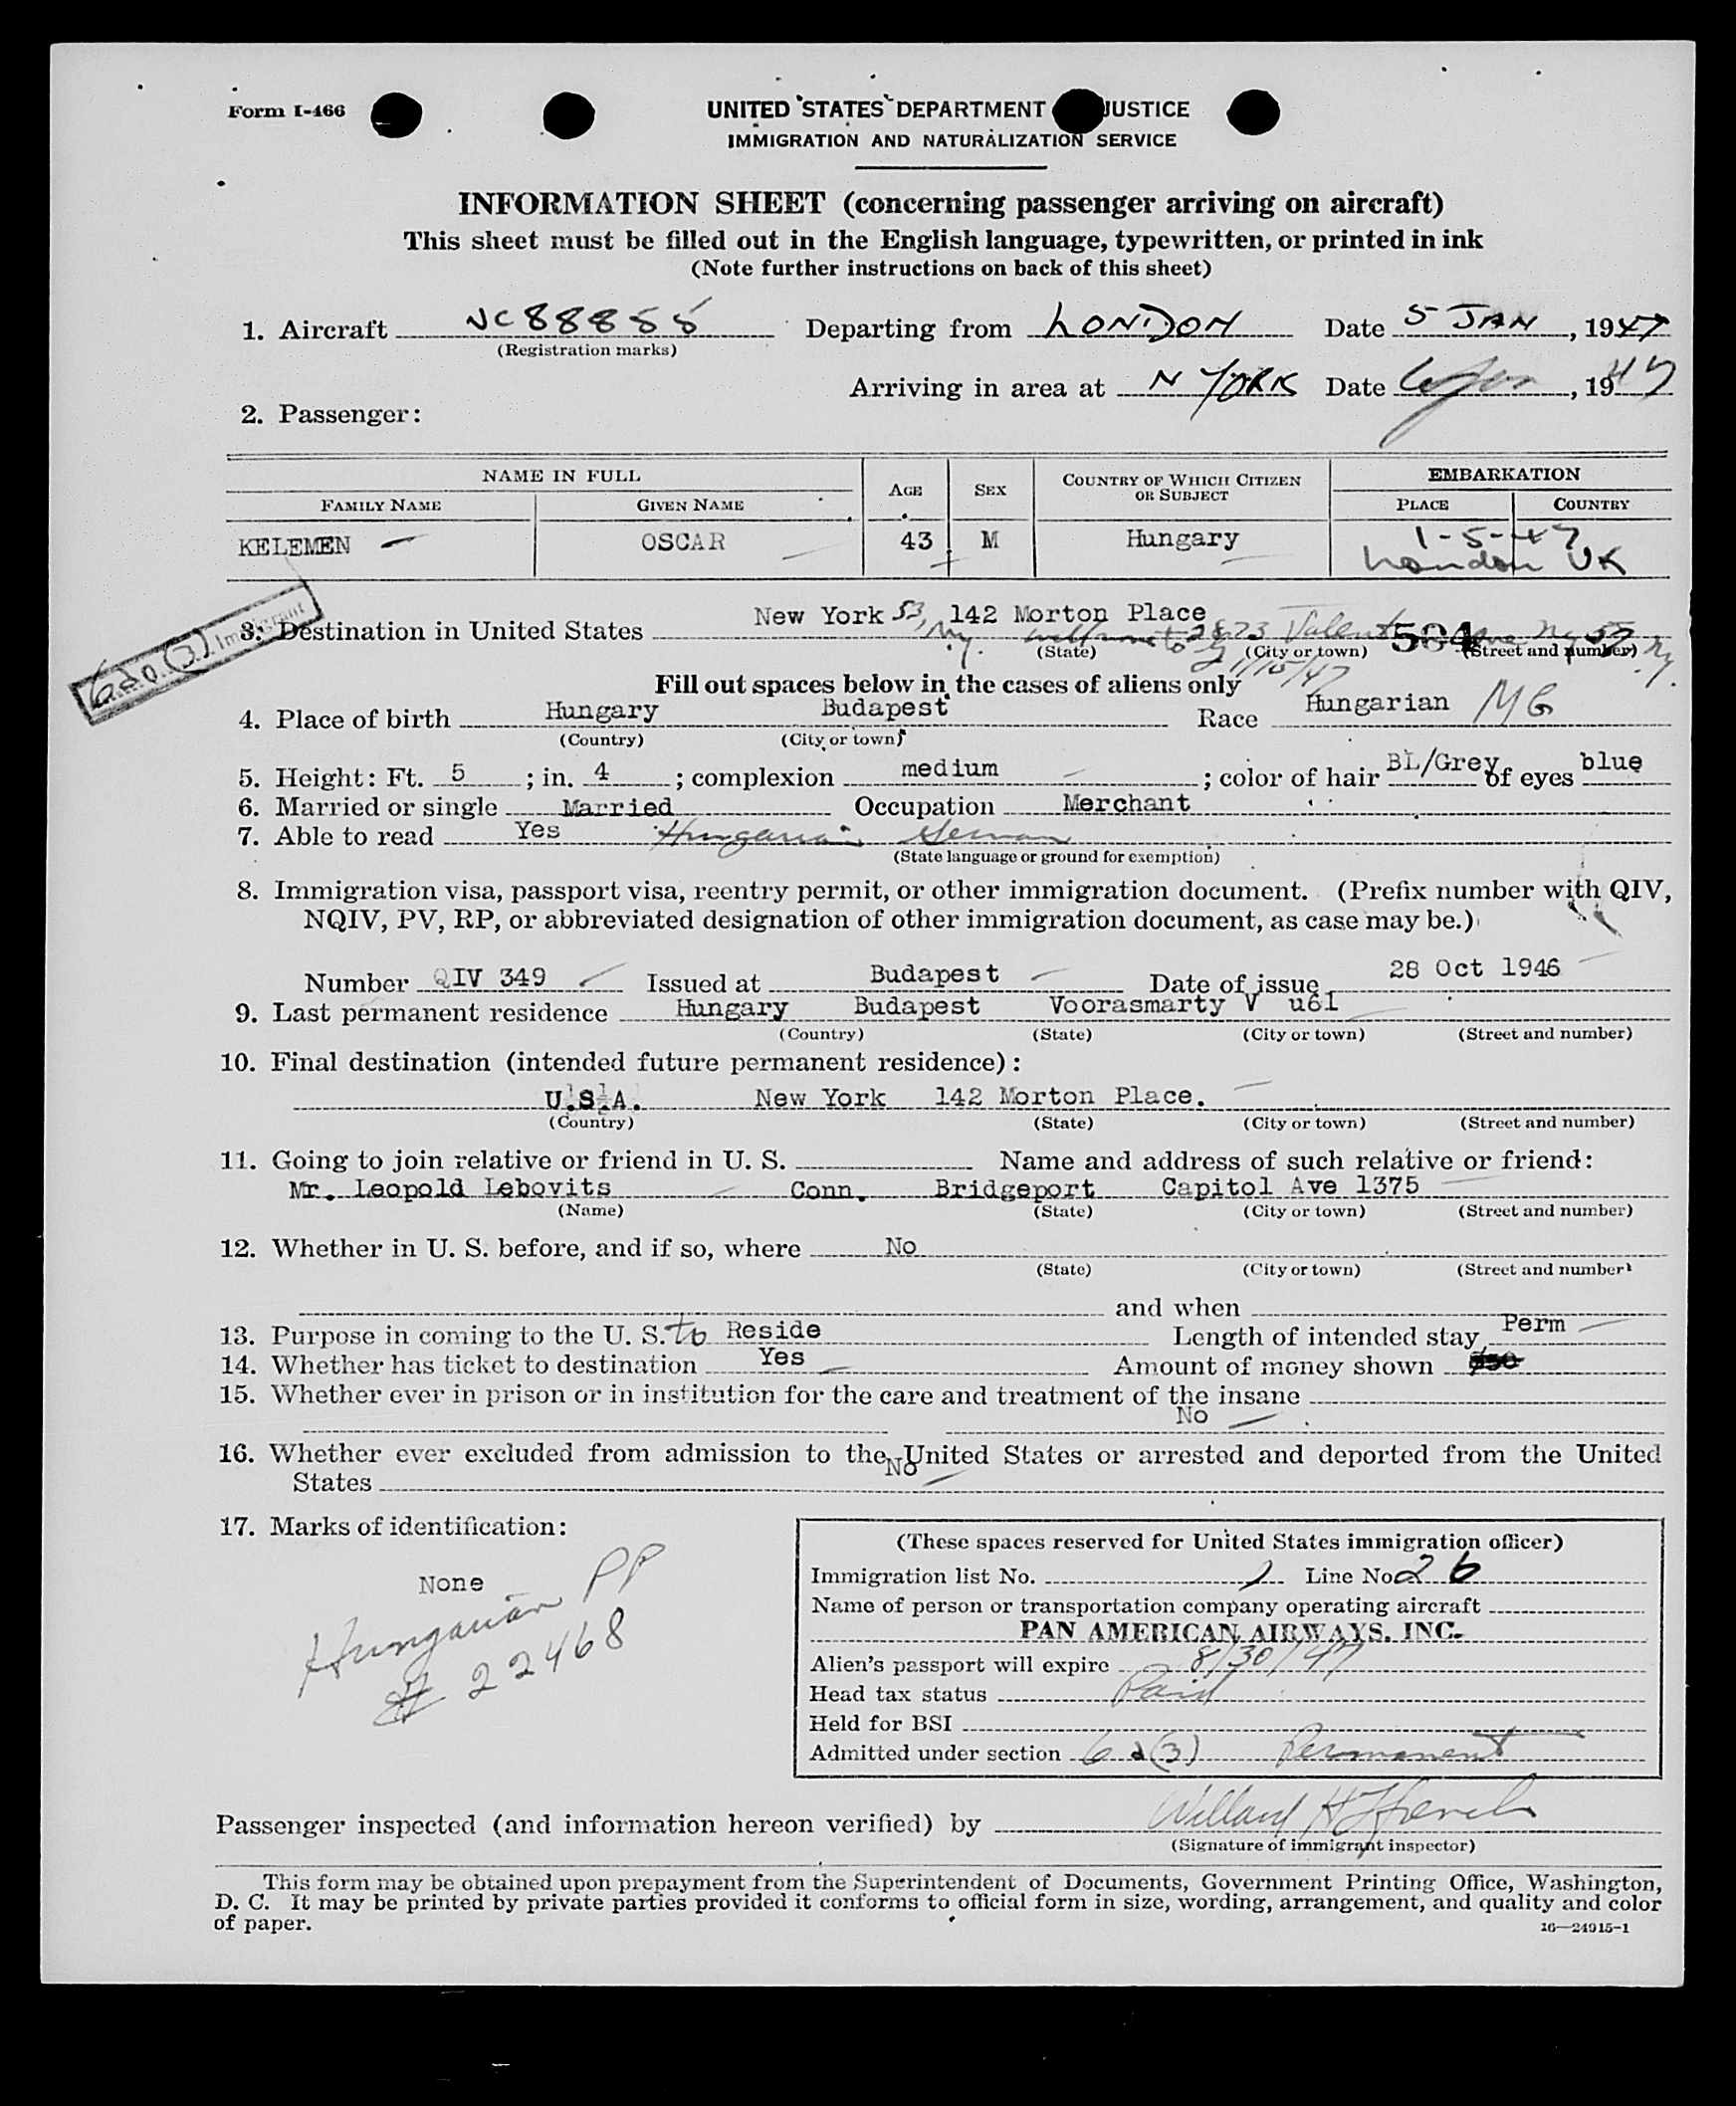 Form I-466
UNITED STATES DEPARTMENT JUSTICE
IMMIGRATION AND NATURALIZATION SERVICE
INFORMATION SHEET (concerning passenger arriving on aircraft)
This sheet must be filled out in the English language, typewritten, or printed in ink
(Note further instructions on back of this sheet)
1. Aircraft NC88855 Departing from LONDON Date 5 JAN, 1947
(Registration marks)
Arriving in area at N YORK Date 6 Jan, 1947
2. Passenger:
NAME IN FULL AGE SEX COUNTRY OF WHICH CITIZEN OR SUBJECT EMBARKATION
FAMILY NAME GIVEN NAME PLACE COUNTRY
KELEMEN OSCAR 43 M Hungary 1-5-47
London UK
New York 53, 142 Morton Place
3. Destination in United States N.Y. 2873 584 Ave NY 57 N.Y.
(State) (City or town) (Street and number)
1/15/47
6d(3) Immigrant
Fill out spaces below in the cases of aliens only
4. Place of birth Hungary Budapest Race Hungarian MG
(Country) (City or town)
5. Height: Ft. 5; in. 4; complexion medium; color of hair BL/Grey of eyes blue
6. Married or single Married Occupation Merchant
7. Able to read Yes Hungarian German
(State language or ground for exemption)
8. Immigration visa, passport visa, reentry permit, or other immigration document. (Prefix number with QIV,
NQIV, PV, RP, or abbreviated designation of other immigration document, as case may be.)
Number QIV 349 Issued at Budapest Date of issue 28 Oct 1946
9. Last permanent residence Hungary Budapest Voorasmarty V u61
(Country) (State) (City or town) (Street and number)
10. Final destination (intended future permanent residence):
U.S.A. New York 142 Morton Place.
(Country) (State) (City or town) (Street and number)
11. Going to join relative or friend in U. S. Name and address of such relative or friend:
Mr. Leopold Lebovits Conn. Bridgeport Capitol Ave 1375
(Name) (State) (City or town) (Street and number)
12. Whether in U. S. before, and if so, where No
(State) (City or town) (Street and number)
and when
13. Purpose in coming to the U. S. to Reside Length of intended stay Perm
14. Whether has ticket to destination Yes Amount of money shown $50
15. Whether ever in prison or in institution for the care and treatment of the insane
No
16. Whether ever excluded from admission to the United States or arrested and deported from the United
States No
17. Marks of identification:
None
Hungarian PP
# 22468
(These spaces reserved for United States immigration officer)
Immigration list No. 1 Line No. 26
Name of person or transportation company operating aircraft
PAN AMERICAN AIRWAYS, INC.
Alien's passport will expire 8/30/47
Head tax status Paid
Held for BSI
Admitted under section 6d(3) Permanent
Passenger inspected (and information hereon verified) by Willard H French
(Signature of immigrant inspector)
This form may be obtained upon prepayment from the Superintendent of Documents, Government Printing Office, Washington,
D. C. It may be printed by private parties provided it conforms to official form in size, wording, arrangement, and quality and color
of paper.
16—24915-1